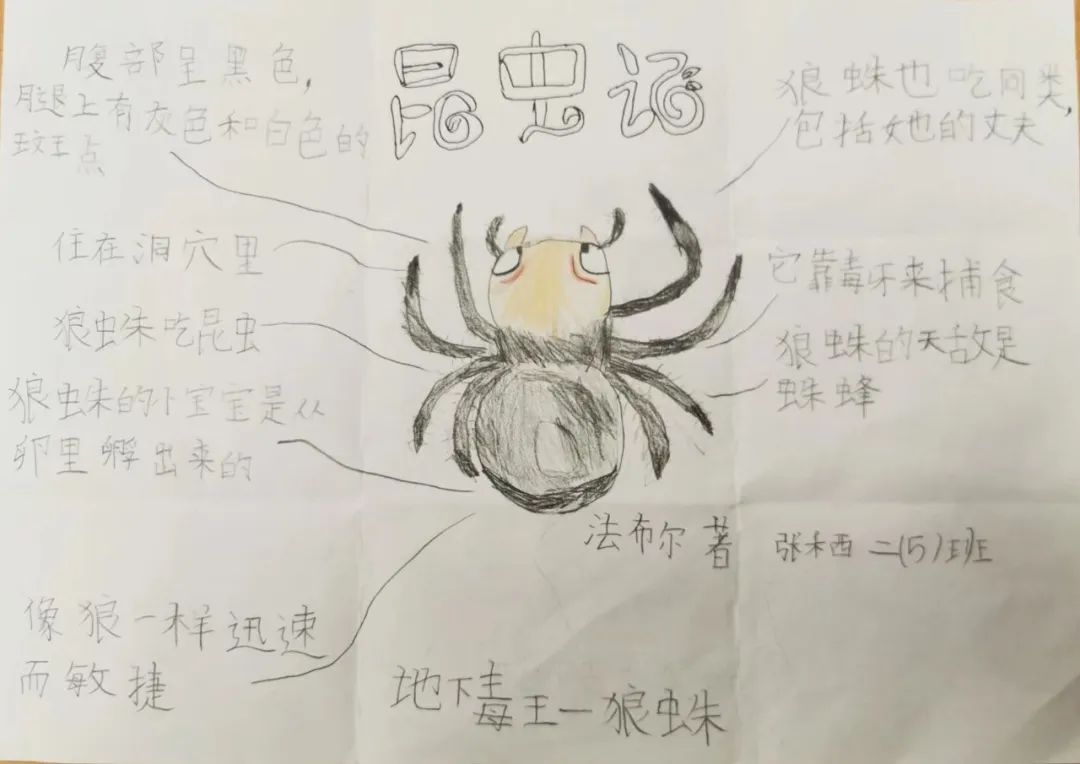 昆虫记
腹部呈黑色，
腿上有灰色和白色的
斑点
住在洞穴里
狼蛛吃昆虫
狼蛛的小宝宝是从
卵里孵出来的
像狼一样迅速
而敏捷
狼蛛也吃同类，
包括她的丈夫
它靠毒牙来捕食
狼蛛的天敌是
蛛蜂
法布尔 著
张禾西 二(5)班
地下毒王一狼蛛